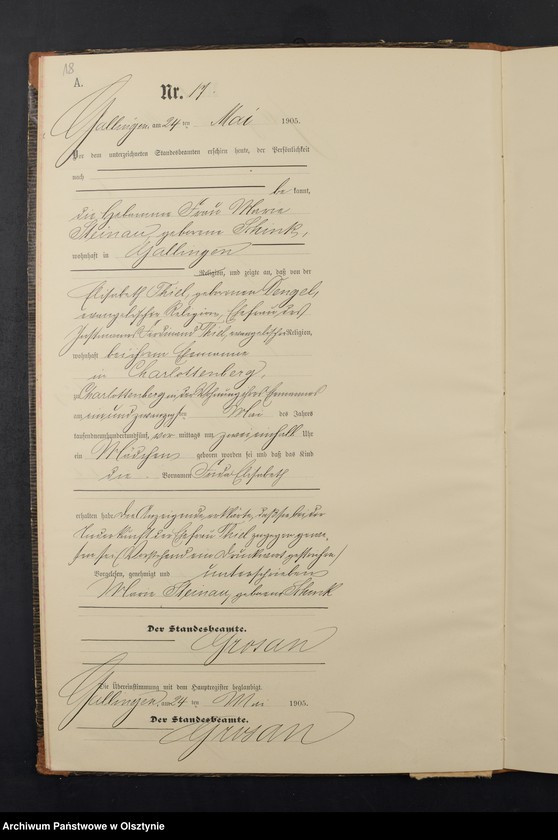 18
A.
Nr. 17.
Gallingen, am 24 ten Mai 1905.
Vor dem unterzeichneten Standesbeamten erschien heute, der Persönlichkeit
nach
be kannt,
die Hebamme Frau Marie
Steinau, geborene Schink,
wohnhaft in Gallingen
Religion, und zeigte an, daß von der
Elisabeth Thiel, geborenen Dengel,
evangelischer Religion, Ehefrau des
Instmanns Ferdinand Thiel, evangelischer Religion,
wohnhaft bei ihrem Ehemanne
in Charlottenberg,
Charlottenberg in der Wohnung ihres Ehemannes
am einundzwanzigsten Mai des Jahres
tausendneunhundertfünf, vor mittags um zweieinhalb Uhr
ein Mädchen geboren worden sei und daß das Kind
die Vornamen Frida Elisabeth
erhalten habe. Die Anzeigende erklärte, daß sie bei der
Niederkunft der Ehefrau Thiel zugegen gewe-
sen sei. (Vorstehend ein Druckwort gestrichen)
Vorgelesen, genehmigt und unterschrieben
Marie Steinau, geborene Schink
Der Standesbeamte.
Grosan
Die Übereinstimmung mit dem Hauptregister beglaubigt.
Gallingen, am 24 ten Mai 1905.
Der Standesbeamte.
Grosan
Archiwum Państwowe w Olsztynie